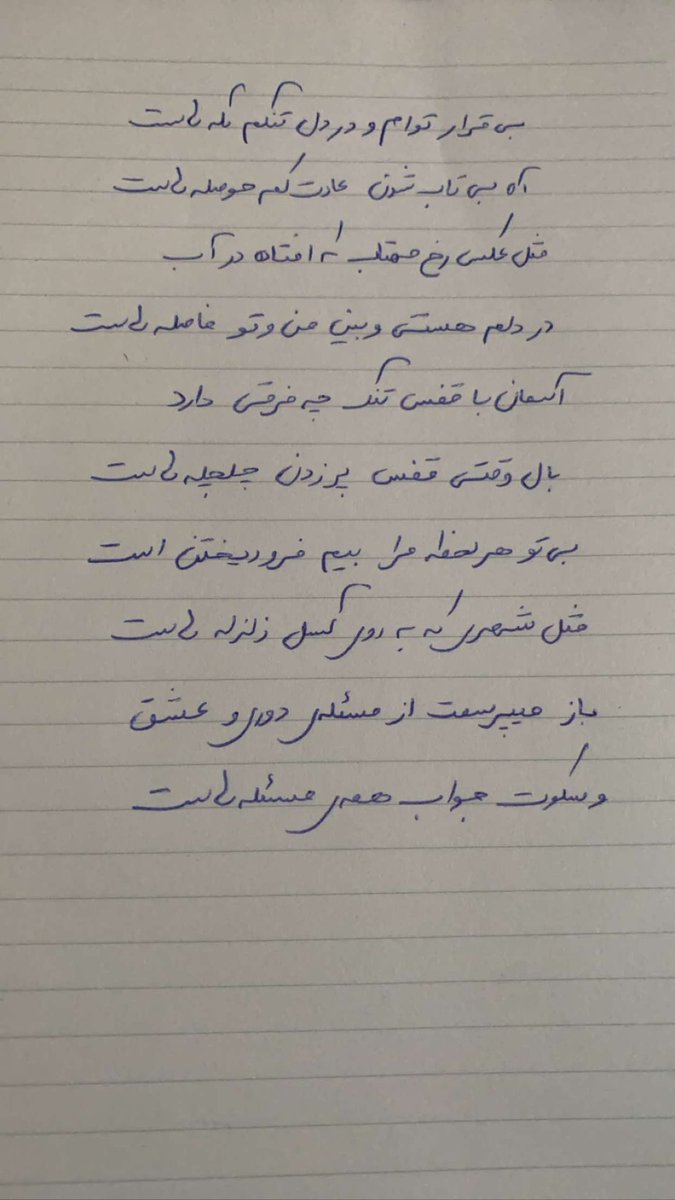 بی قرار توام و در دل تنگم گله هاست
آه بی تاب شدن عادت کم حوصله هاست
مثل عکس رخ مهتاب که افتاده در آب
در دلم هستی و بین من و تو فاصله هاست
آسمان با قفس تنگ چه فرقی دارد
بال وقتی قفس پر زدن چلچله هاست
بی تو هر لحظه مرا بیم فرو ریختن است
مثل شهری که به روی گسل زلزله هاست
باز میپرسمت از مسئله‌ی دوری و عشق
و سکوت جواب همه‌ی مسئله هاست